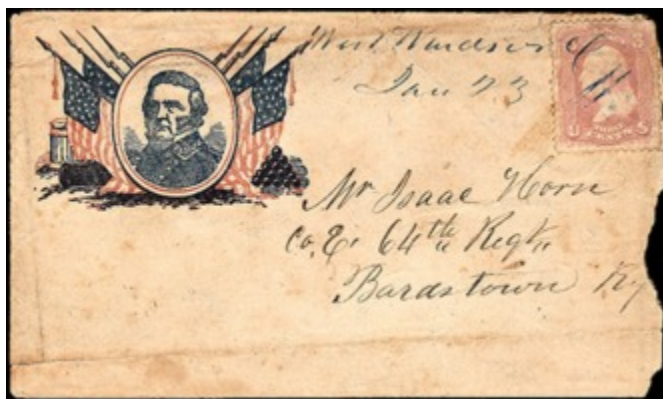 West Windsor O
Jan 23
U S
Mr Isaac Horn
Co. E. 64th Regt
Bardstown Ky